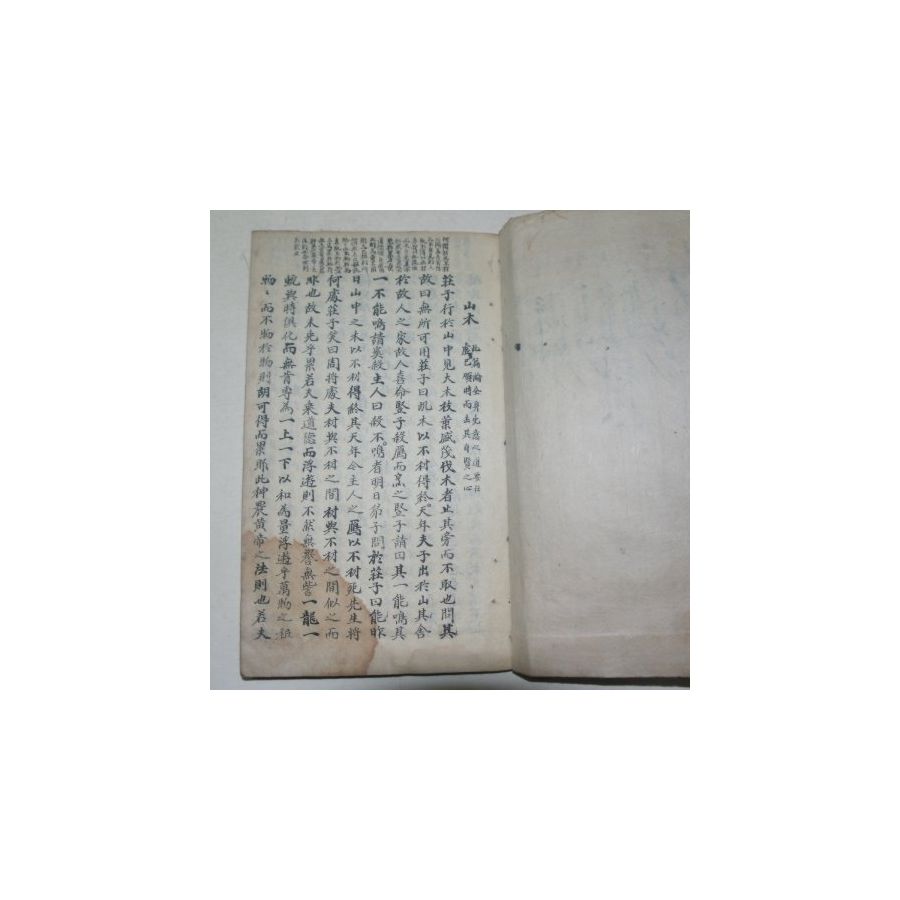 山木
此篇論全身免患之道要在
虛己順時而去其自賢之心
莊子行於山中見大木枝葉盛茂伐木者止其旁而不取也問其
故曰無所可用莊子曰此木以不材得終天年夫子出於山其舍
於故人之家故人喜命竪子殺鴈而烹之竪子請曰其一能鳴其
一不能鳴請奚殺主人曰殺不鳴者明日弟子問於莊子曰能昨
日山中之木以不材得終其天年今主人之鴈以不材死先生將
何處莊子笑曰周將處夫材與不材之間材與不材之間似之而
非也故未免乎累若夫乘道德而浮遊則不然無譽無訾一龍一
蛇與時俱化而無肯專為一上一下以和為量浮遊乎萬物之祖
物〻而不物於物則胡可得而累耶此神農黃帝之法則也若夫